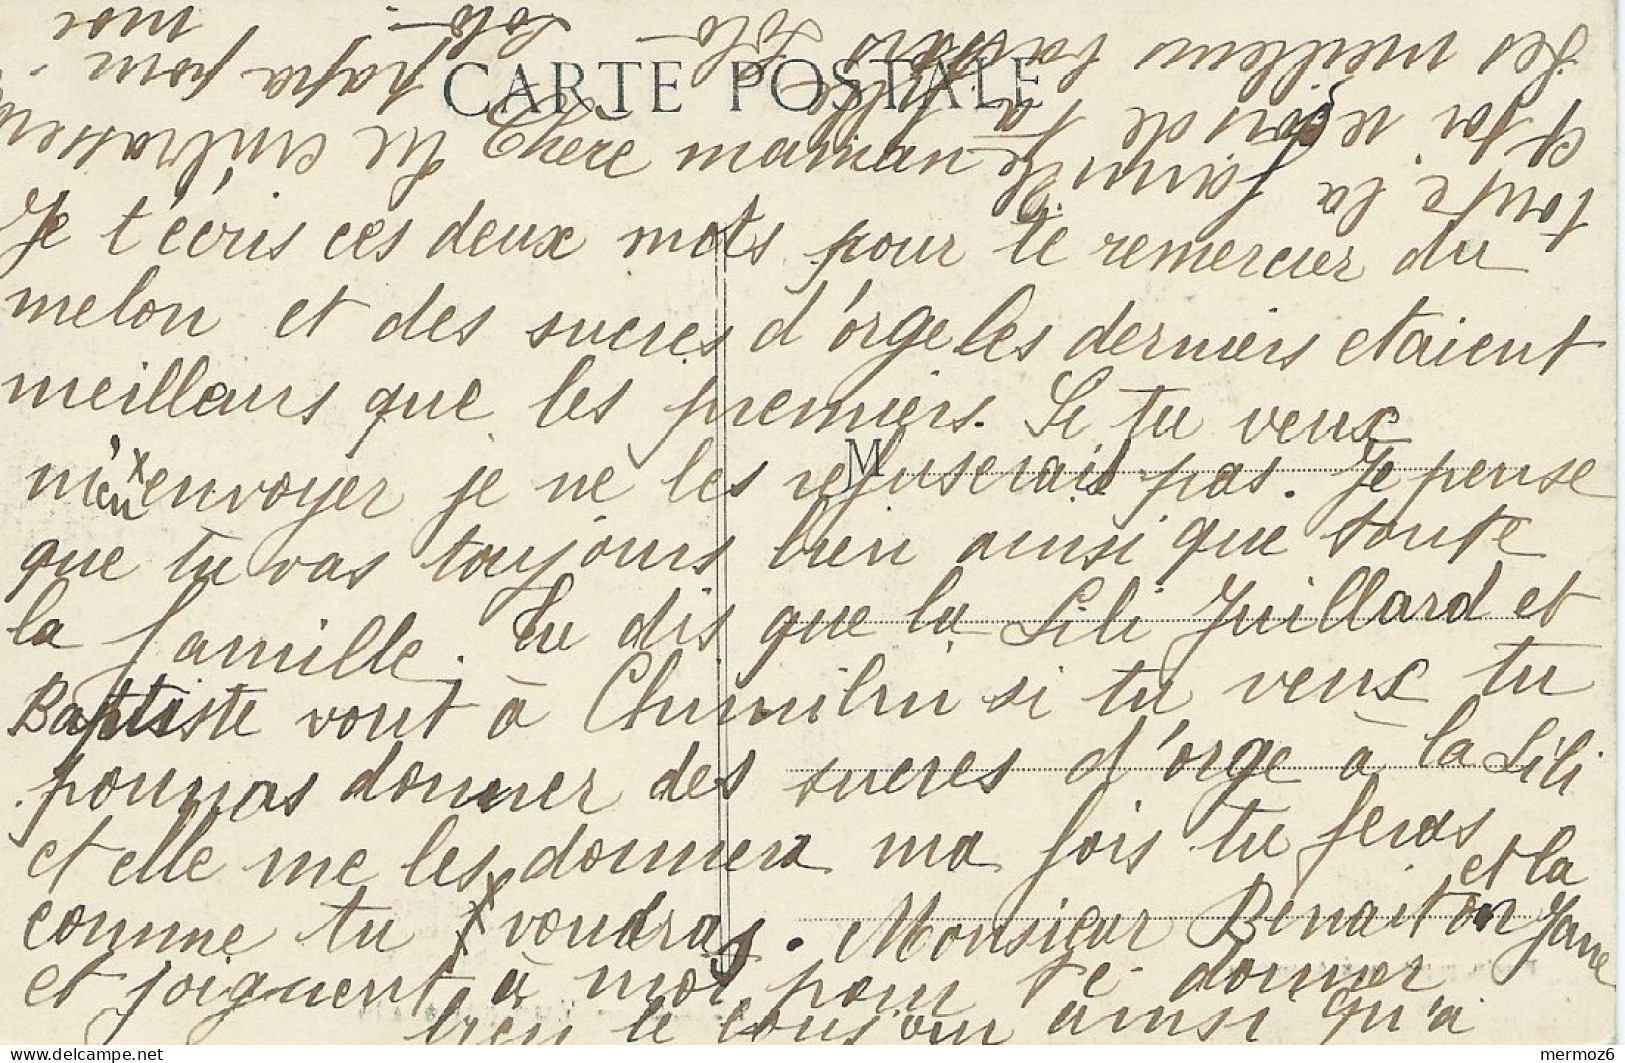 CARTE POSTALE
Chère maman
Je t'écris ces deux mots pour te remercier du
melon et des sucres d'orge les derniers etaient
meilleurs que les premiers. Si tu veux
m'en envoyer je ne les refuserais pas. Je pense
M
que tu vas toujours bien ainsi que toute
la famille. Tu dis que la Lili Juillard et
Baptiste vont à Chimilin si tu veux tu
pourras donner des sucres d'orge à la Lili
et elle me les donnera ma fois tu feras
comme tu voudras. Monsieur Benaiton et la Jane
et joignent à moi pour te donner
bien le bonjour ainsi qu'à
toute la famille
et toi reçois de ta fille
les meilleurs baisers Lolo
Tu embrasseras
papa pour moi
Lolo
mermoz6